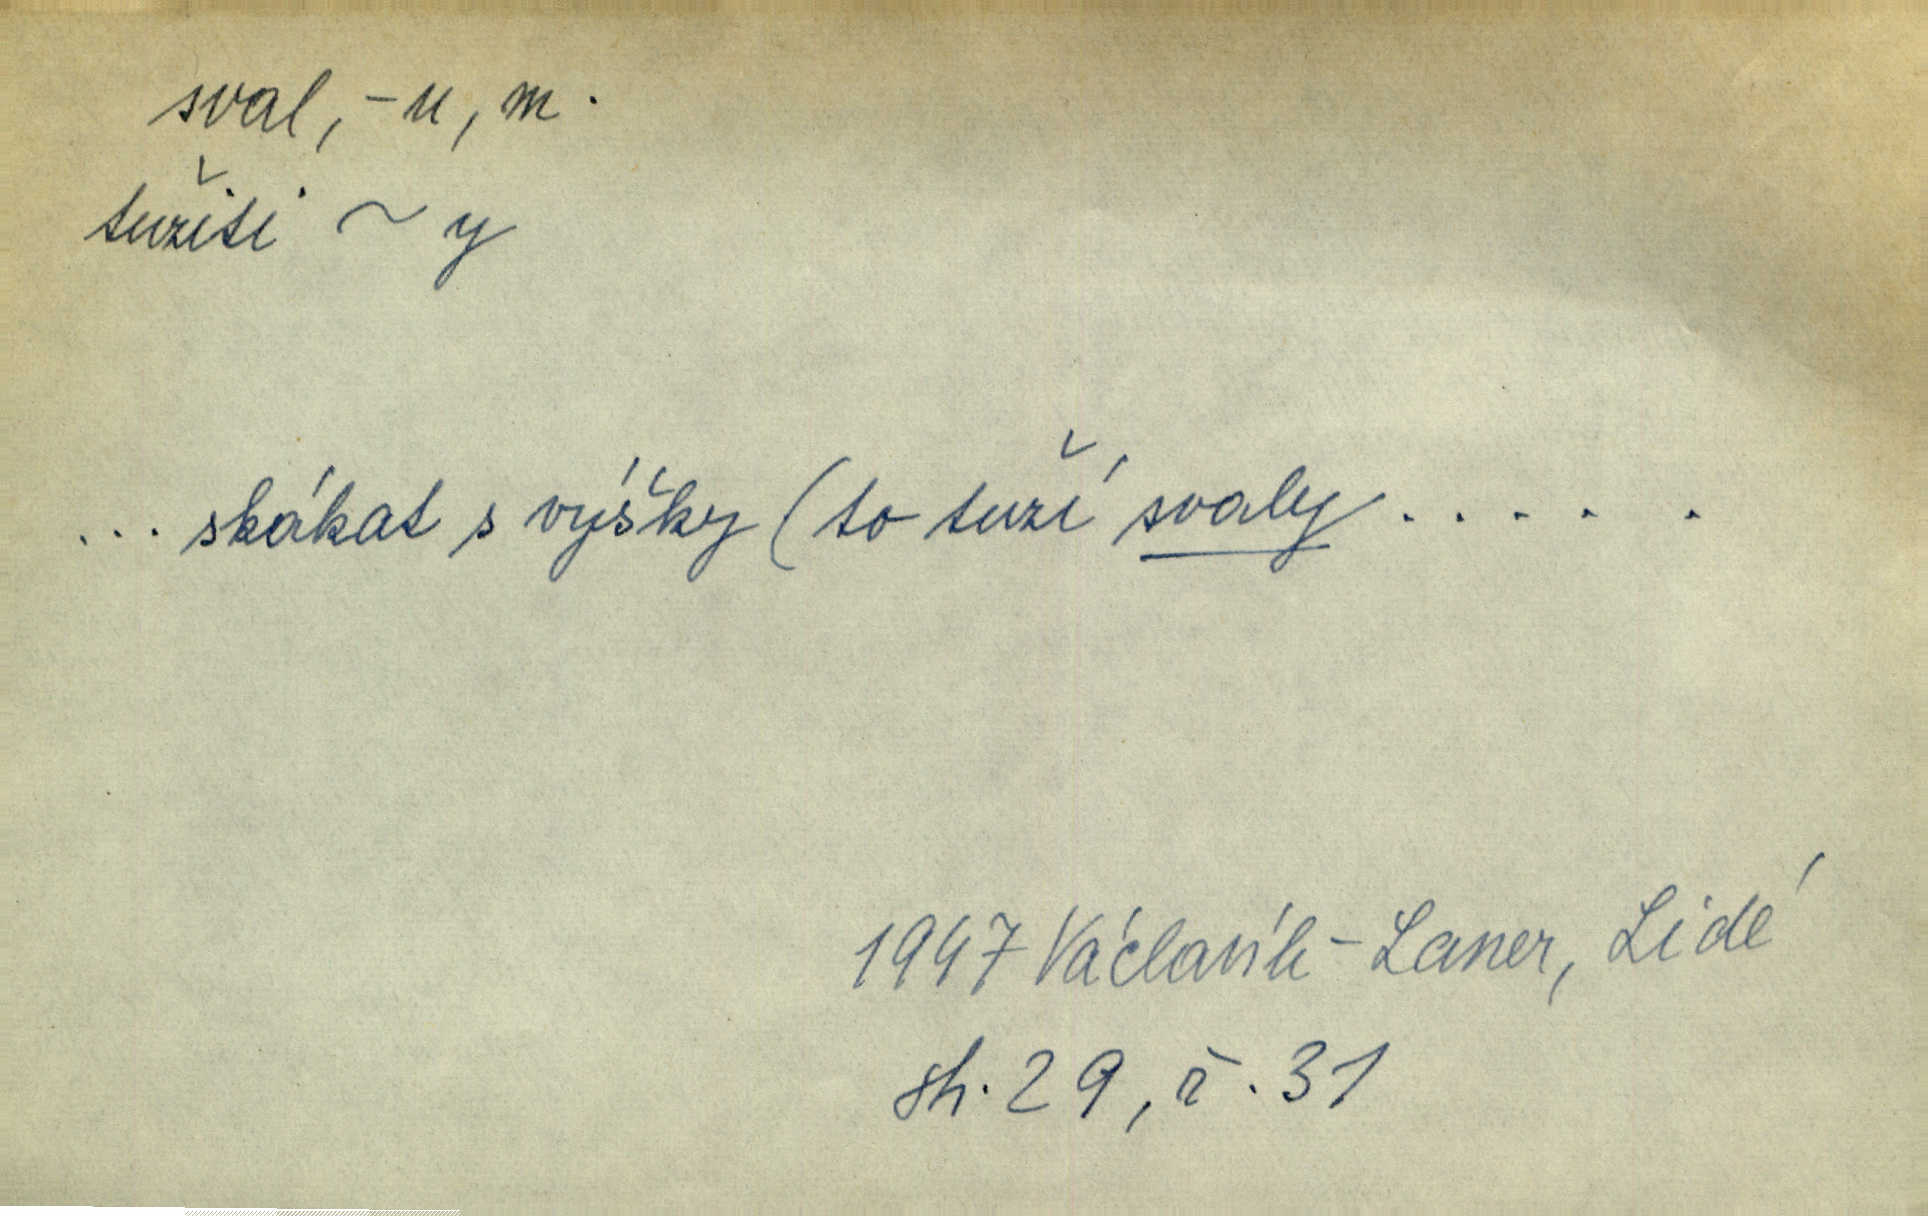 sval, -u, m.
tužiti ~ y
... skákat s výšky (to tuží svaly . . . . .
1947 Václavík - Laner, Lidé
str. 29, ř. 31